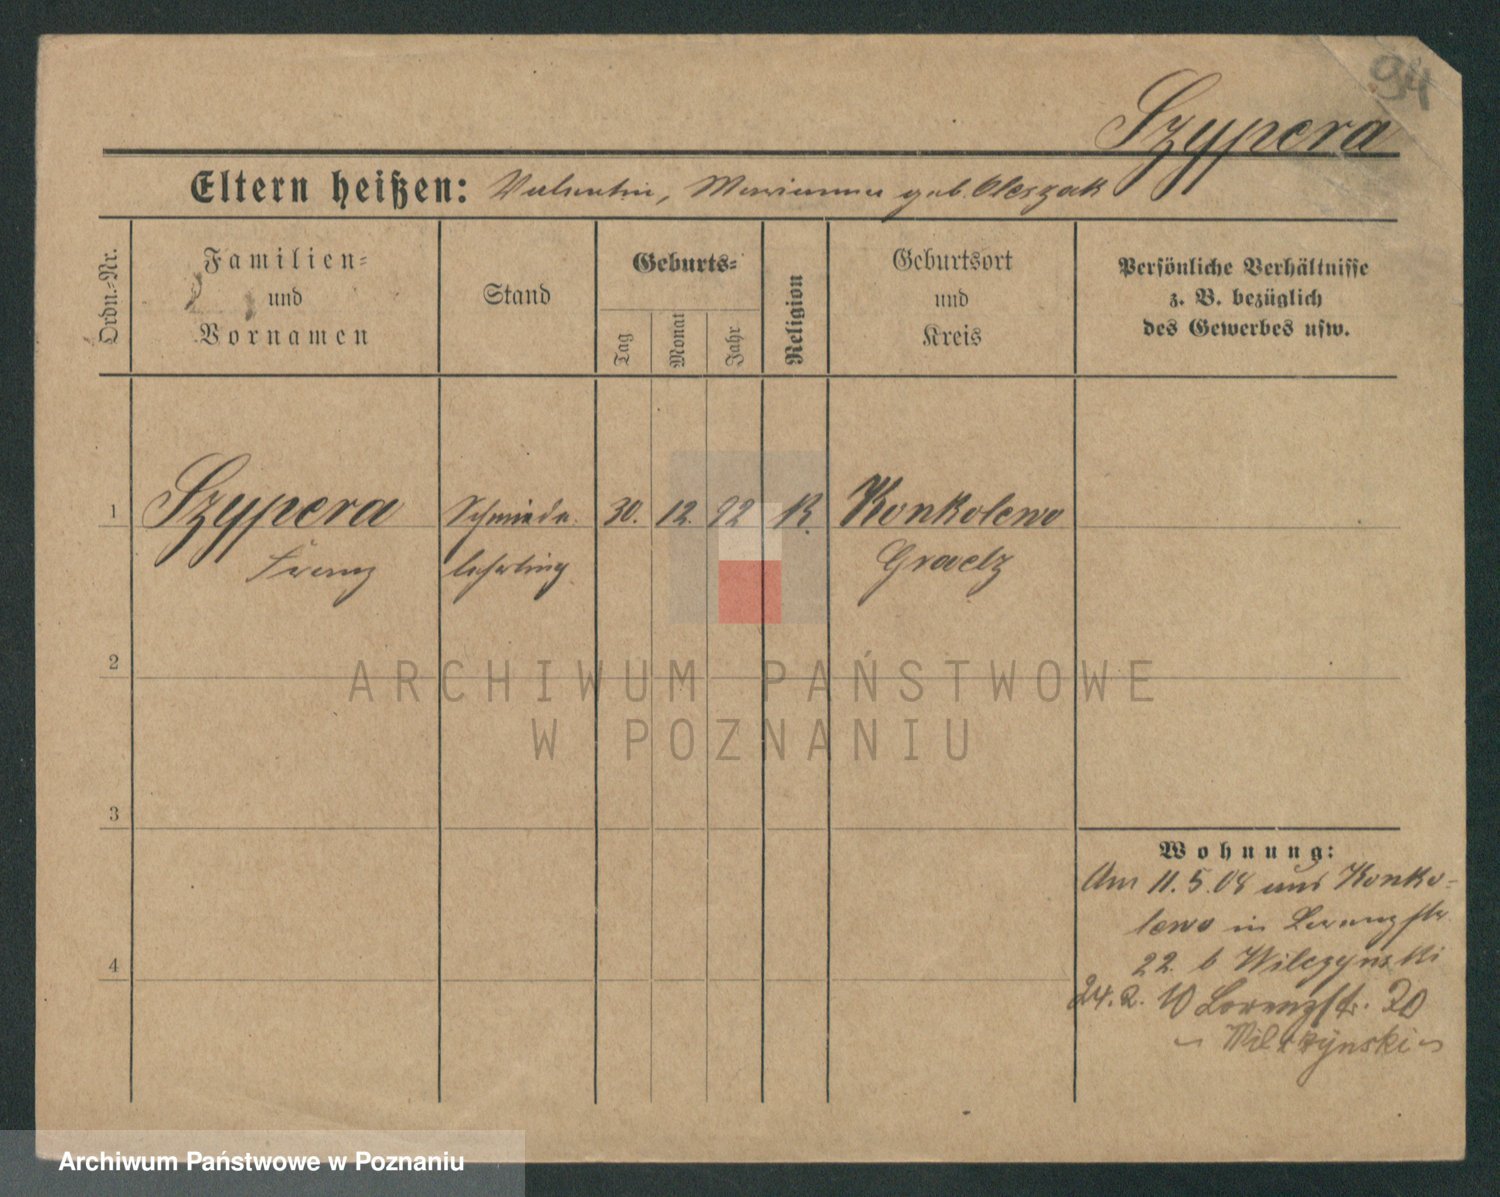 94
Szypera
Eltern heißen: Valentin, Marianna geb. Oleszak
Ordn.-Nr.
Familien-
und
Vornamen
Stand
Geburts-
Tag
Monat
Jahr
Religion
Geburtsort
und
Kreis
Persönliche Verhältnisse
z. B. bezüglich
des Gewerbes usw.
1 Szypera Schmiede 30. 12. 92 K Konkolewo
Franz lehrling Graetz
2
ARCHIWUM PAŃSTWOWE
W POZNANIU
3
Wohnung:
Am 11.5.08 aus Konko-
lewo in Lorenzstr
22. b Wilczynski
4
24.2. 10 Lorenzstr. 20
Wilczynski
Archiwum Państwowe w Poznaniu